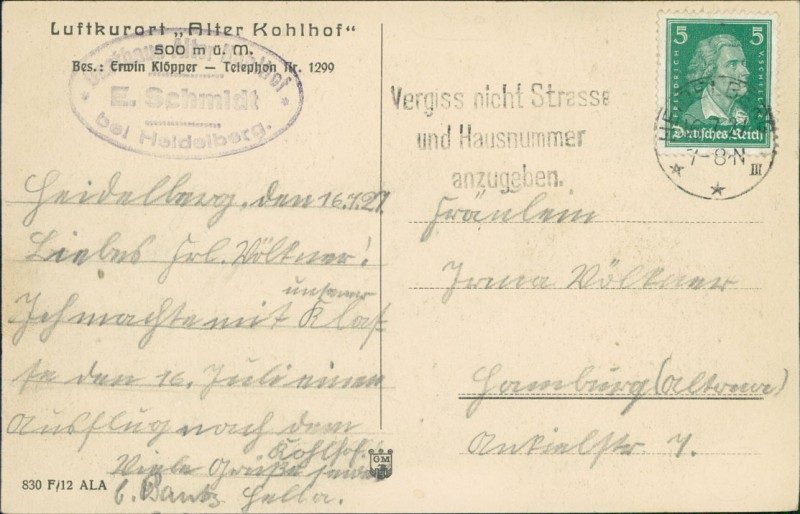 Luftkurort „Alter Kohlhof"
500 m ü. M.
Bes.: Erwin Klöpper — Telephon Nr. 1299
Alter Kohlhof
E. Schmidt
bei Heidelberg.
Vergiss nicht Strasse
und Hausnummer
anzugeben.
5 5
FRIEDRICH V. SCHILLER
Deutsches Reich
7-8N
III
Heidelberg, den 16.7.27.
Liebes Frl. Völkner!
Ich machte mit unserer Klas-
se den 16. Juli einen
Ausflug nach dem
Kohlhof.
Viele Grüße
Hella.
Fräulein
Irma Völkner
Hamburg (Altona)
GM
830 F/12 ALA